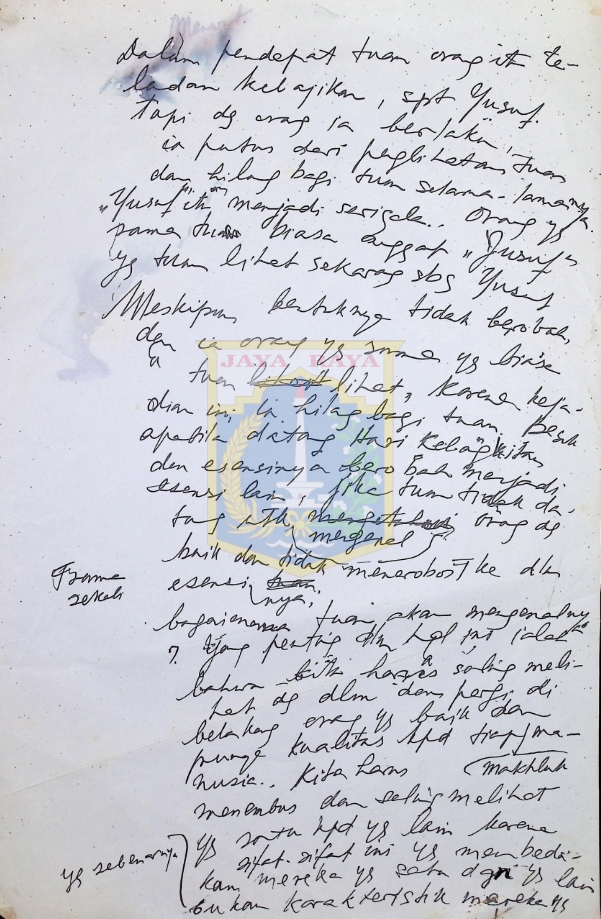 Dalam pendapat tuan orang itu te-
ladan kebajikan, spt Yusuf.
tapi dg orang ia berlaku,
ia putus dari penglihatan tuan
dan hilang bagi tuan selama-lamanya.
"Yusuf" itu menjadi serigala.. Orang yg
sama tuan biasa anggap "Yusuf"
yg tuan lihat sekarang sbg Yusuf
Meskipun bentuknya tidak berobah,
dan ia orang yg sama yg biasa
tuan lihat, karena keja-
dian ini, ia hilang bagi tuan. Besok
apabila datang Hari Kebangkitan
dan esensinya berobah menjadi
esensi lain, jika tuan tidak da-
tang utk mengetahui orang dg
mengenal
baik dan tidak menerobos ke dlm
Frame
sekali
esensi tuan
nya,
bagaimana tuan akan mengenalnya
? Yang penting dlm hal ini ialah
bahwa kita harus saling meli-
hat dg dlm dan pergi di
belakang orang yg baik dan
punya kualitas kpd tiap ma-
nusia.. Kita harus
makhluk
menembus dan saling melihat
yg sebenarnya
yg satu kpd yg lain karena
sifat-sifat ini yg membeda-
kan mereka yg satu dgn yg lain
bukan karakteristik mereka yg
JAYA RAYA